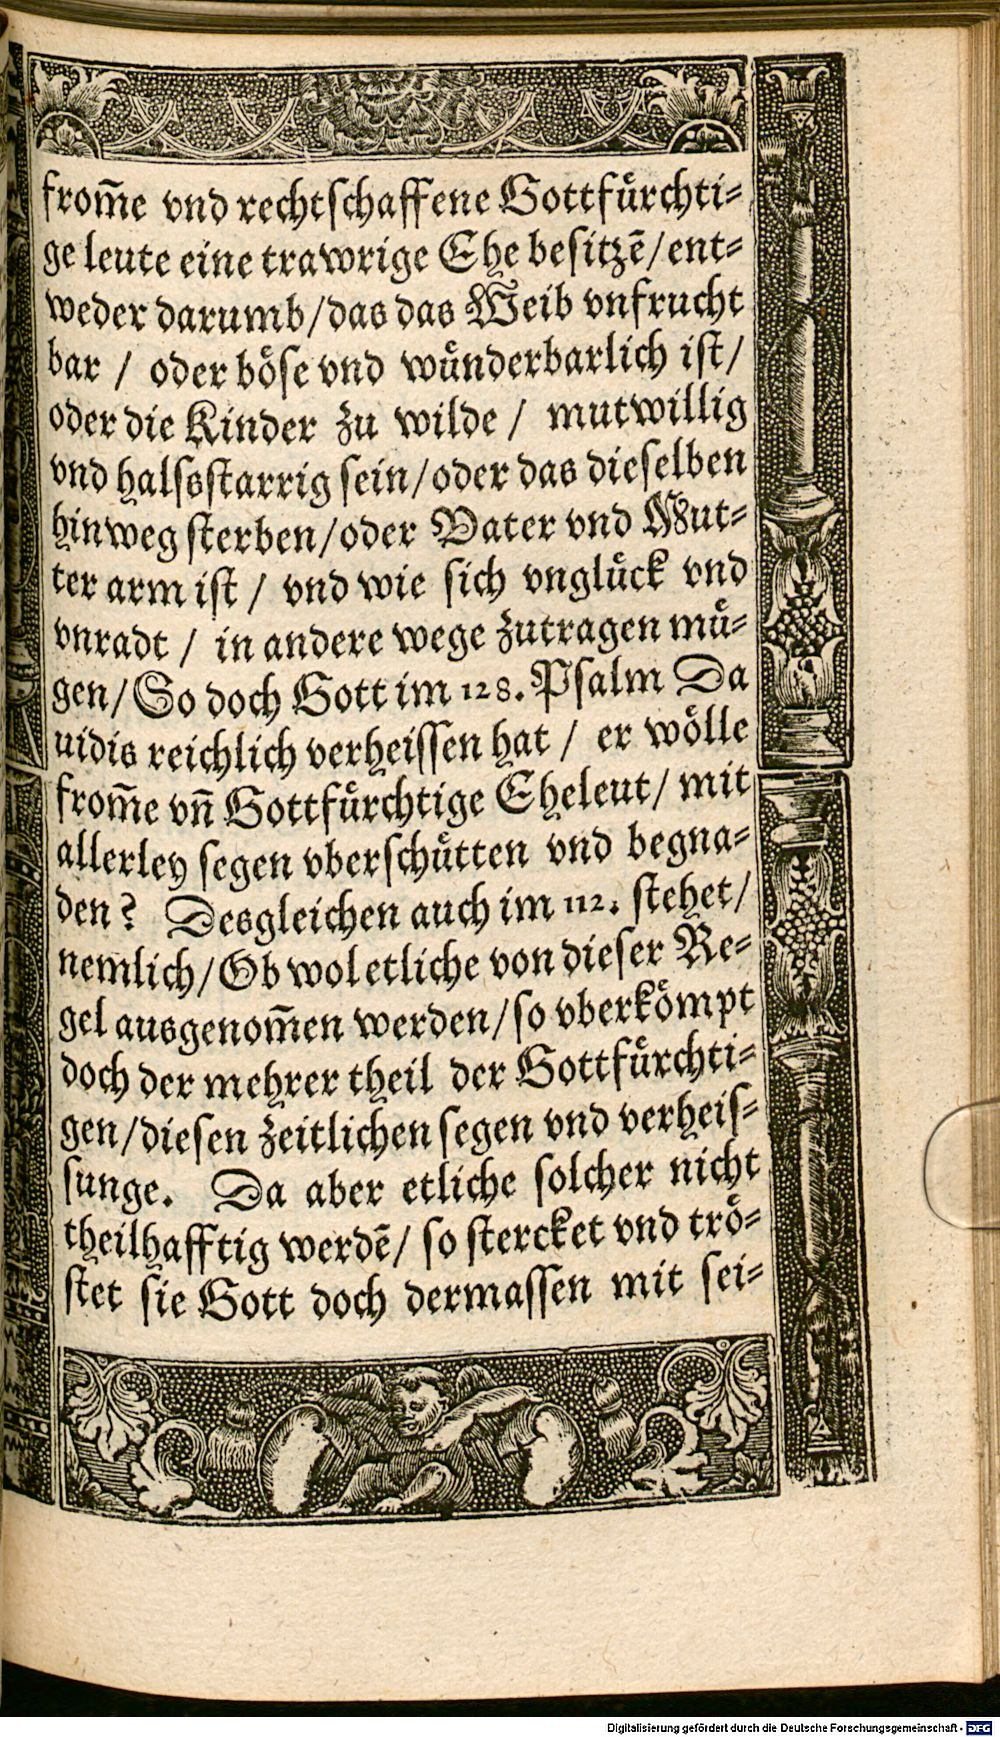 from̄e vnd rechtschaffene Gottfürchti=
ge leute eine trawrige Ehe besitzē/ent=
weder darumb/das das Weib vnfrucht
bar / oder böse vnd wünderbarlich ist/
oder die Kinder zu wilde / mutwillig
vnd halsstarrig sein/oder das dieselben
hinweg sterben/oder Vater vnd Mut=
ter arm ist / vnd wie sich vnglück vnd
vnradt / in andere wege zutragen mü=
gen/So doch Gott im 128. Psalm Da
uidis reichlich verheissen hat / er wölle
from̄e vn̄ Gottfürchtige Eheleut/ mit
allerley segen vberschütten vnd begna=
den? Desgleichen auch im 112. stehet/
nemlich/Ob wol etliche von dieser Re=
gel ausgenom̄en werden/so vberkömpt
doch der mehrer theil der Gottfürchti=
gen/diesen zeitlichen segen vnd verheis=
sunge. Da aber etliche solcher nicht
theilhafftig werdē/ so stercket vnd trö=
stet sie Gott doch dermassen mit sei=
Digitalisierung gefördert durch die Deutsche Forschungsgemeinschaft - DFG